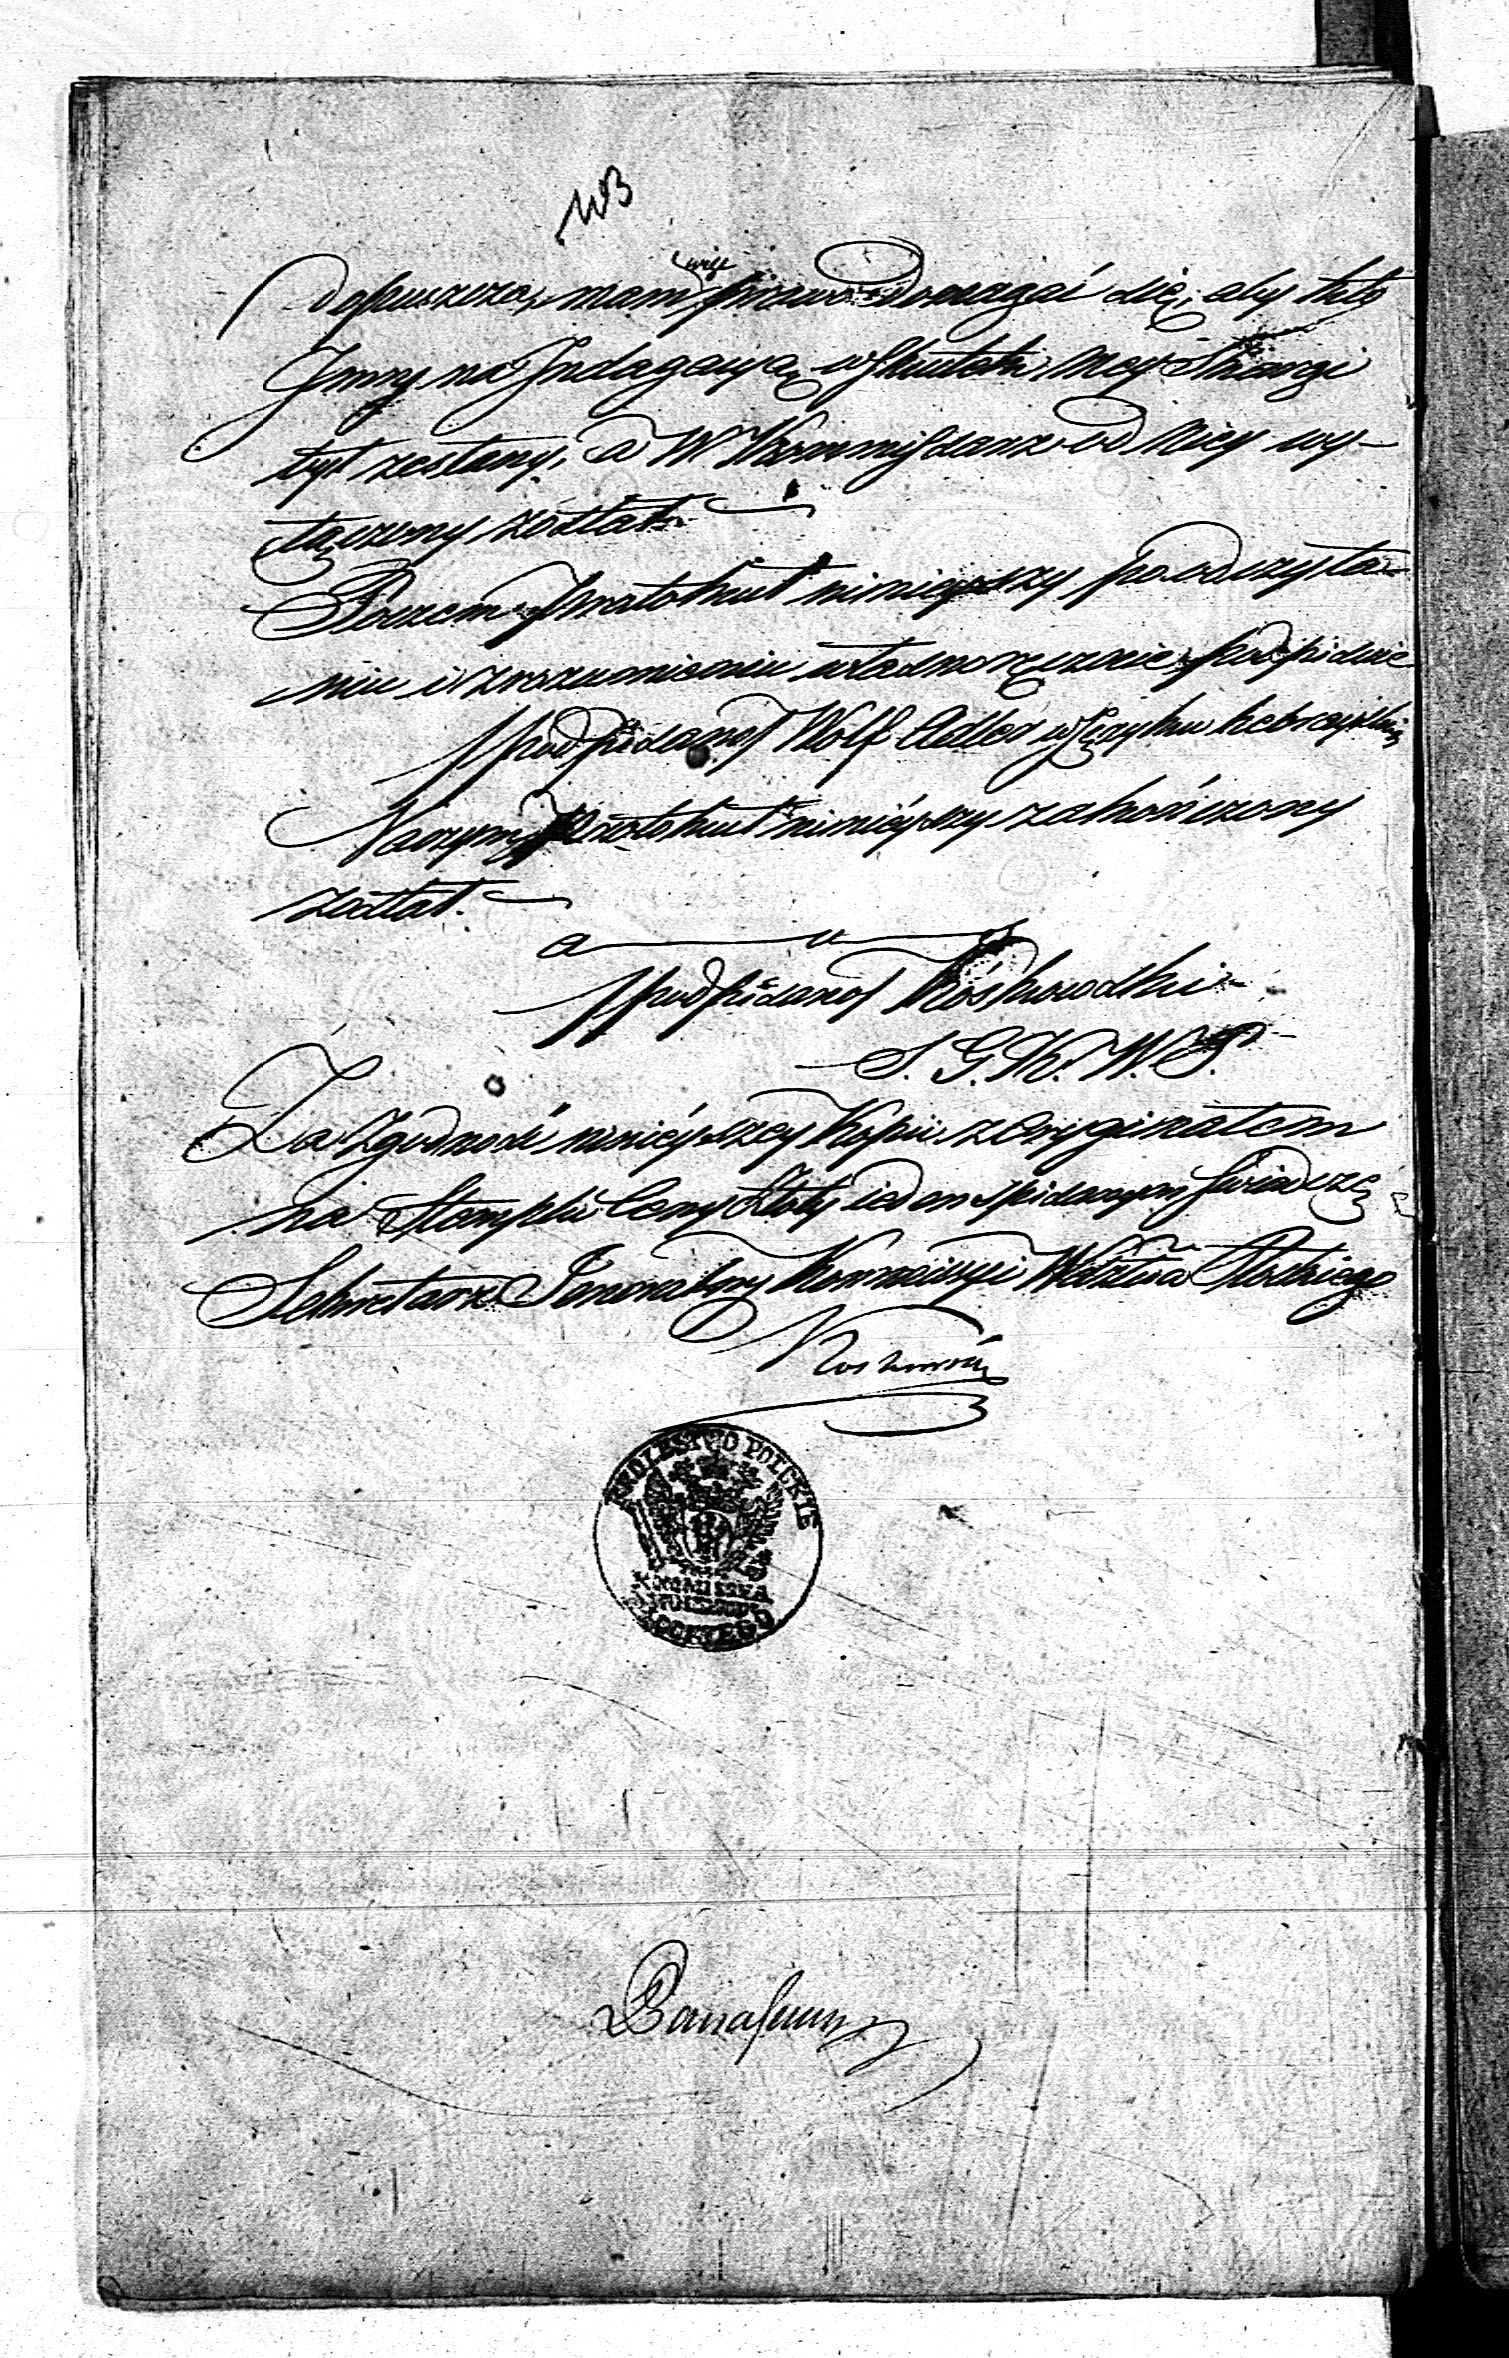 dopuszcza, mam więc prawo domagać się, aby kto
Inny na Indagacyą w skutek mey Skargi
był zesłany, a W Kommissarz od Niey wy-
łączony został.
Poczem Protokuł ninieyszy po odczyta-
niu i zrozumieniu własnoręcznie podpisuie
/podpisano/ Wolf Adler w Języku hebrayskim
Na czym Protokuł ninieyszy zakończony
został.
a u s
/podpisano/ Kóskowski
S. G. K. W. P.
Za zgodność ninieyszey Kopii z Oryginałem
na Stemplu Ceny Złoty ieden spisanym świadczę
Sekretarz Jeneralny Kommissyi Wdztwa Płockiego
KROLESTWO POLSKIE
KOMISSYA
WOIEWODZ
PŁOCKIEGO